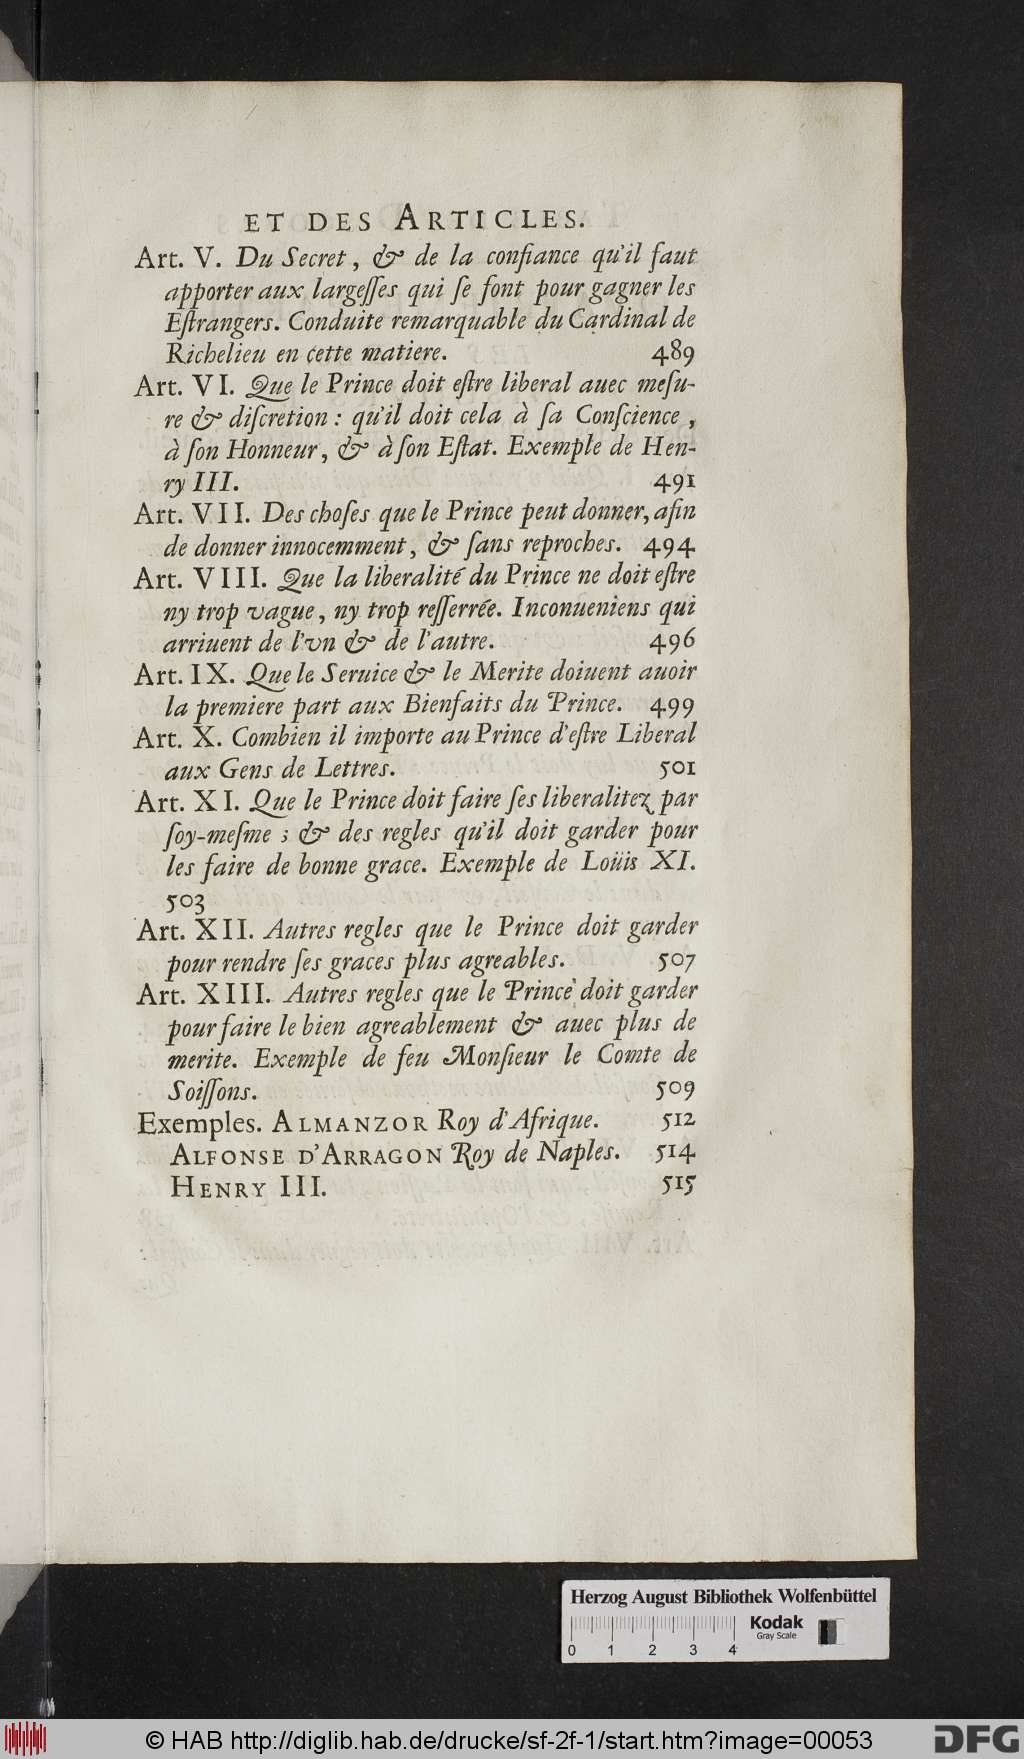 ET DES ARTICLES.
Art. V. Du Secret, & de la confiance qu'il faut
apporter aux largeſſes qui ſe font pour gagner les
Eſtrangers. Conduite remarquable du Cardinal de
Richelieu en cette matiere. 489
Art. VI. Que le Prince doit eſtre liberal auec meſu-
re & diſcretion : qu'il doit cela à ſa Conſcience,
à ſon Honneur, & à ſon Eſtat. Exemple de Hen-
ry III. 491
Art. VII. Des choſes que le Prince peut donner, afin
de donner innocemment, & ſans reproches. 494
Art. VIII. Que la liberalité du Prince ne doit eſtre
ny trop vague, ny trop reſſerrée. Inconueniens qui
arriuent de l'vn & de l'autre. 496
Art. IX. Que le Seruice & le Merite doiuent auoir
la premiere part aux Bienfaits du Prince. 499
Art. X. Combien il importe au Prince d'eſtre Liberal
aux Gens de Lettres. 501
Art. XI. Que le Prince doit faire ſes liberalitez par
ſoy-meſme ; & des regles qu'il doit garder pour
les faire de bonne grace. Exemple de Loüis XI.
503
Art. XII. Autres regles que le Prince doit garder
pour rendre ſes graces plus agreables. 507
Art. XIII. Autres regles que le Prince doit garder
pour faire le bien agreablement & auec plus de
merite. Exemple de feu Monſieur le Comte de
Soiſſons. 509
Exemples. ALMANZOR Roy d'Afrique. 512
ALFONSE D'ARRAGON Roy de Naples. 514
HENRY III. 515
Herzog August Bibliothek Wolfenbüttel
Kodak
Gray Scale
0 1 2 3 4
© HAB http://diglib.hab.de/drucke/sf-2f-1/start.htm?image=00053
DFG